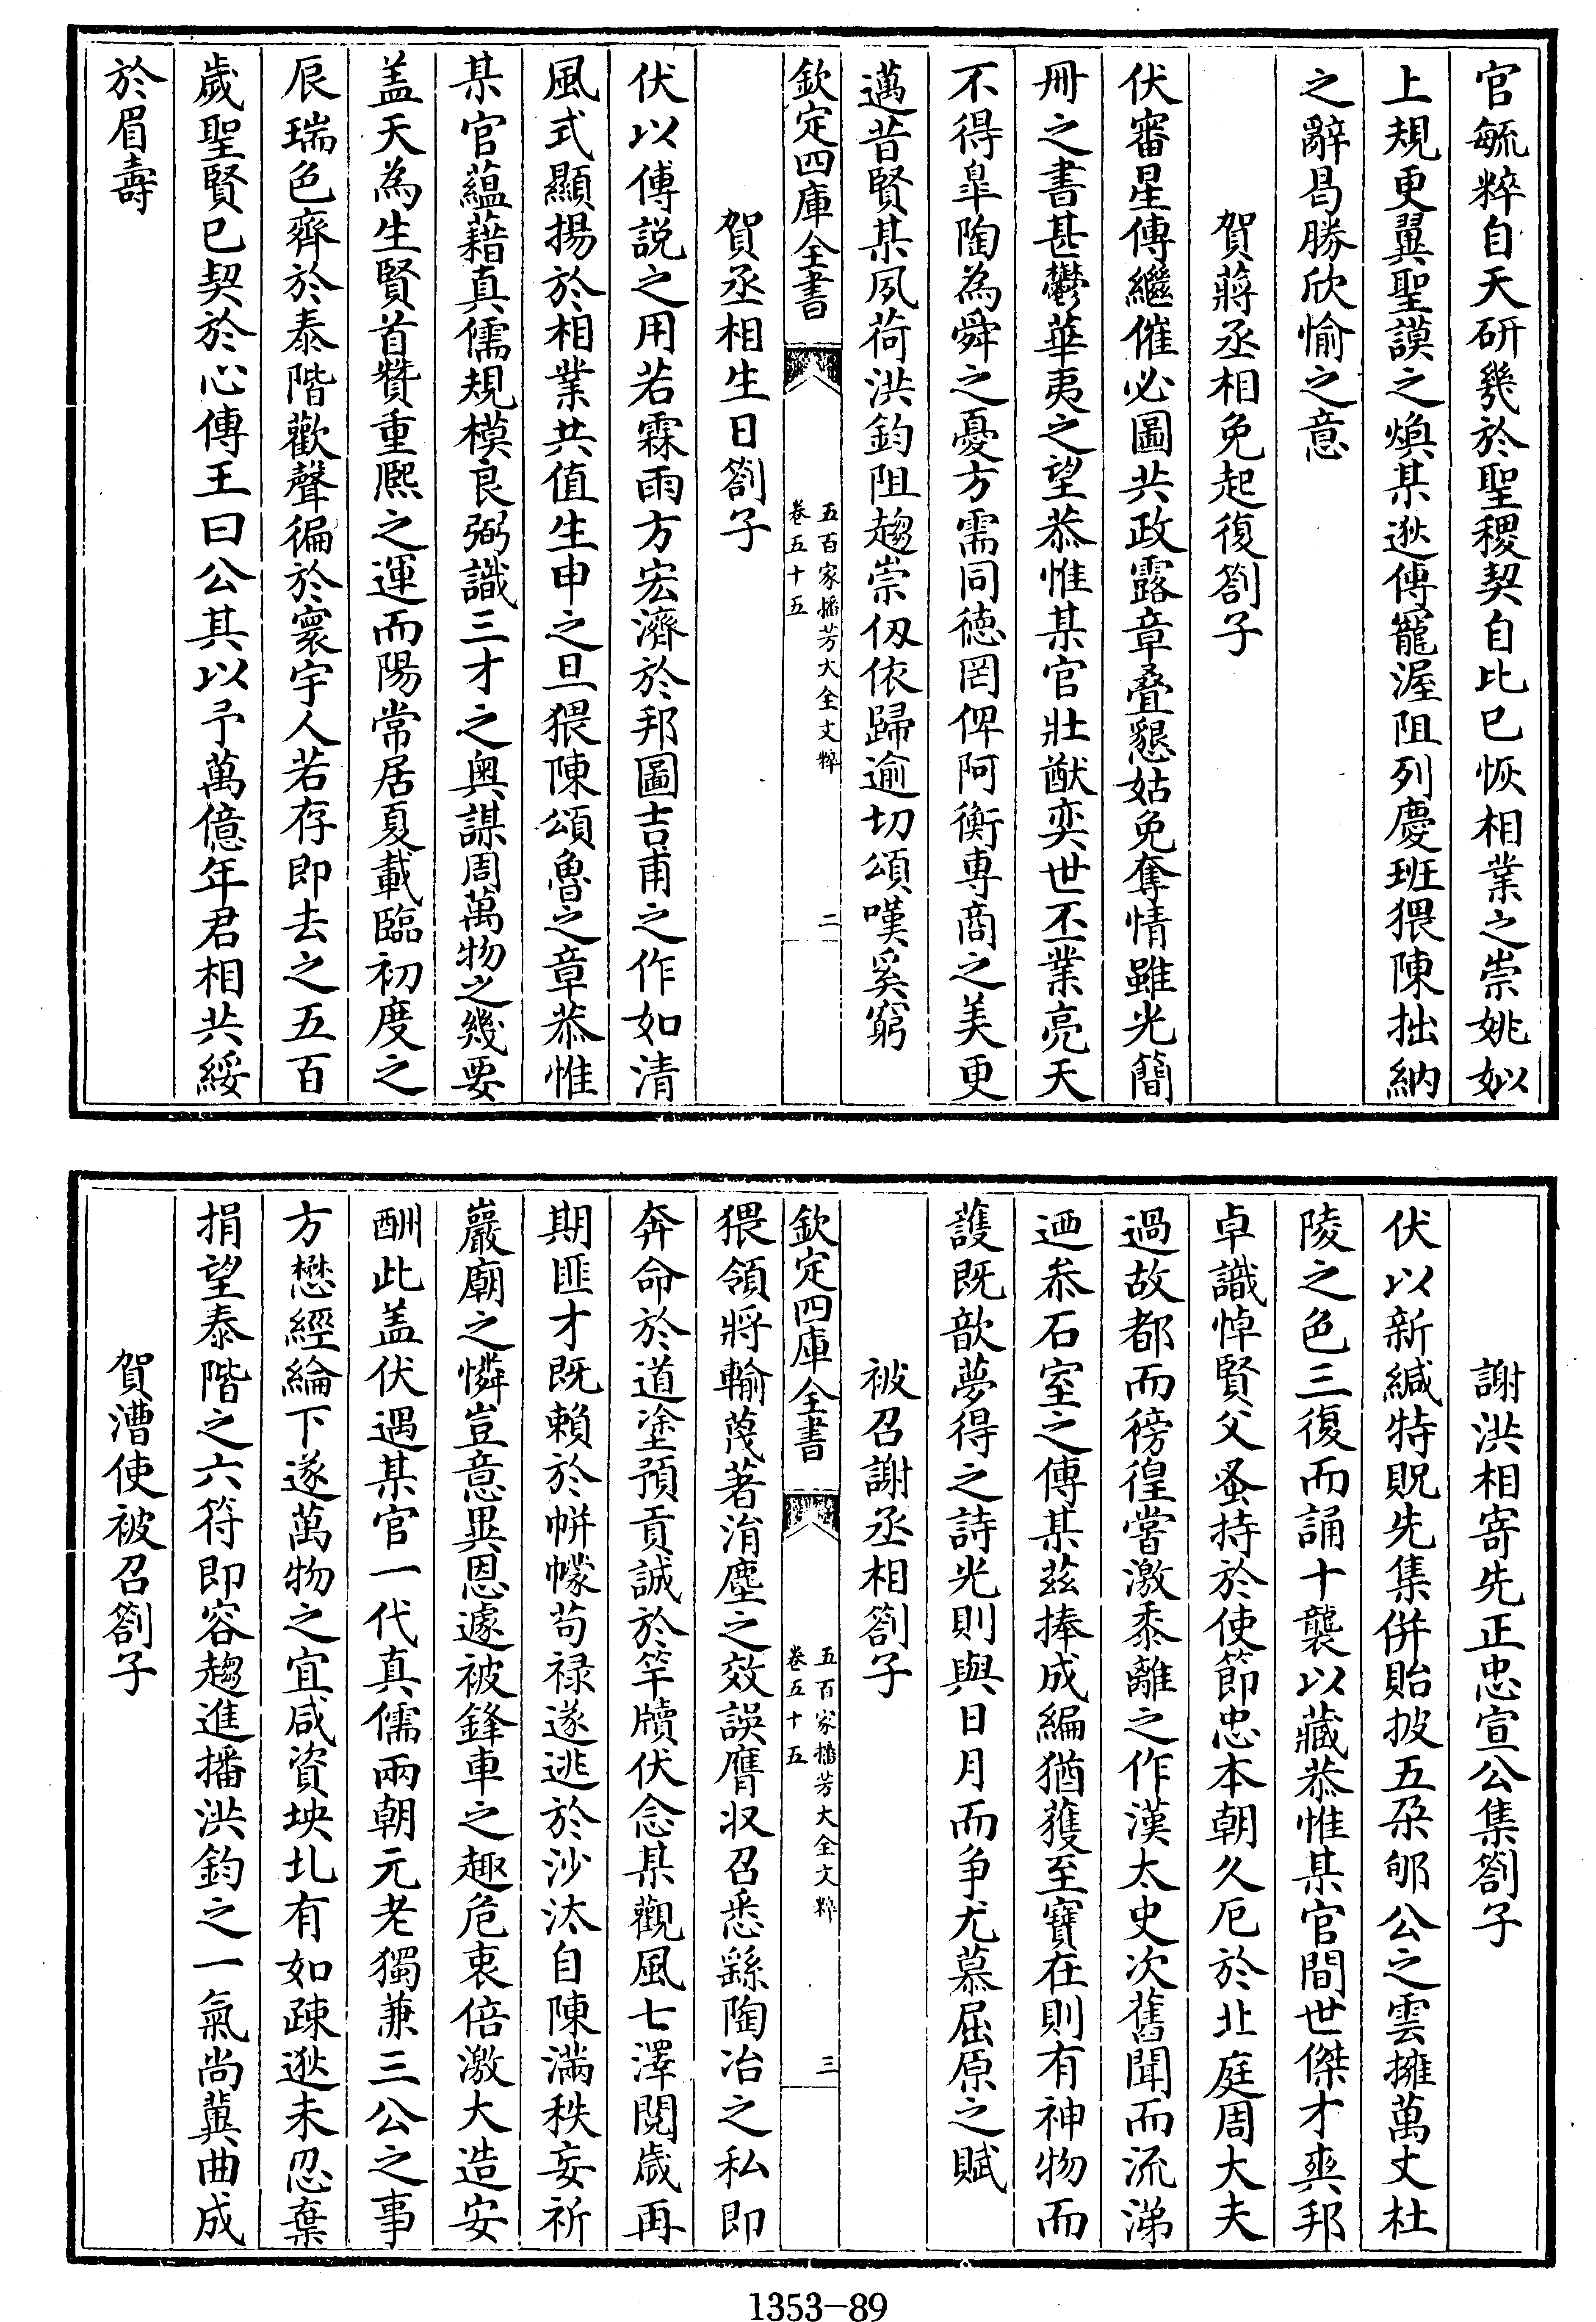 官毓粹自天研幾於聖稷契自比已恢相業之崇姚姒
上規更翼聖謨之煥某逖傳寵渥阻列慶班猥陳拙納
之辭曷勝欣愉之意
賀蔣丞相免起復劄子
伏審星傳繼催必圖共政露章叠懇姑免奪情雖光簡
冊之書甚鬱華夷之望恭惟某官壯猷奕世丕業亮天
不得臯陶為舜之憂方需同徳罔俾阿衡専商之美更
邁昔賢某夙荷洪鈞阻趨崇仭依歸逾切頌嘆奚窮
欽定四庫全書
五百家播芳大全文粹
卷五十五
二
賀丞相生日劄子
伏以傅説之用若霖雨方宏濟於邦圖吉甫之作如清
風式顯揚於相業共值生申之旦猥陳頌魯之章恭惟
某官蘊藉真儒規模良弼識三才之奥謀周萬物之幾要
盖天為生賢首贊重熙之運而陽常居夏載臨初度之
辰瑞色齊於泰階歡聲徧於寰宇人若存即去之五百
歲聖賢已契於心傳王曰公其以予萬億年君相共綏
於眉壽
謝洪相寄先正忠宣公集劄子
伏以新緘特貺先集併貽披五朶郇公之雲擁萬丈杜
陵之色三復而誦十襲以藏恭惟某官間世傑才爽邦
卓識悼賢父蚤持於使節忠本朝久厄於北庭周大夫
過故都而徬徨嘗激黍離之作漢太史次舊聞而流涕
迺叅石室之傳某兹捧成編猶獲至寳在則有神物而
護既歆夢得之詩光則與日月而争尤慕屈原之賦
被召謝丞相劄子
欽定四庫全書
五百家播芳大全文粹
卷五十五
三
猥領將輸蔑著涓塵之效誤膺収召悉繇陶冶之私即
奔命於道塗預貢誠於竿牘伏念某觀風七澤閲歲再
期匪才既賴於帡幪茍禄遂逃於沙汰自陳滿秩妄祈
巖廟之憐豈意異恩遽被鋒車之趣危衷倍激大造安
酬此盖伏遇某官一代真儒兩朝元老獨兼三公之事
方懋經綸下遂萬物之宜咸資坱圠有如疎逖未忍棄
捐望泰階之六符即容趨進播洪鈞之一氣尚冀曲成
賀漕使被召劄子
1353-89